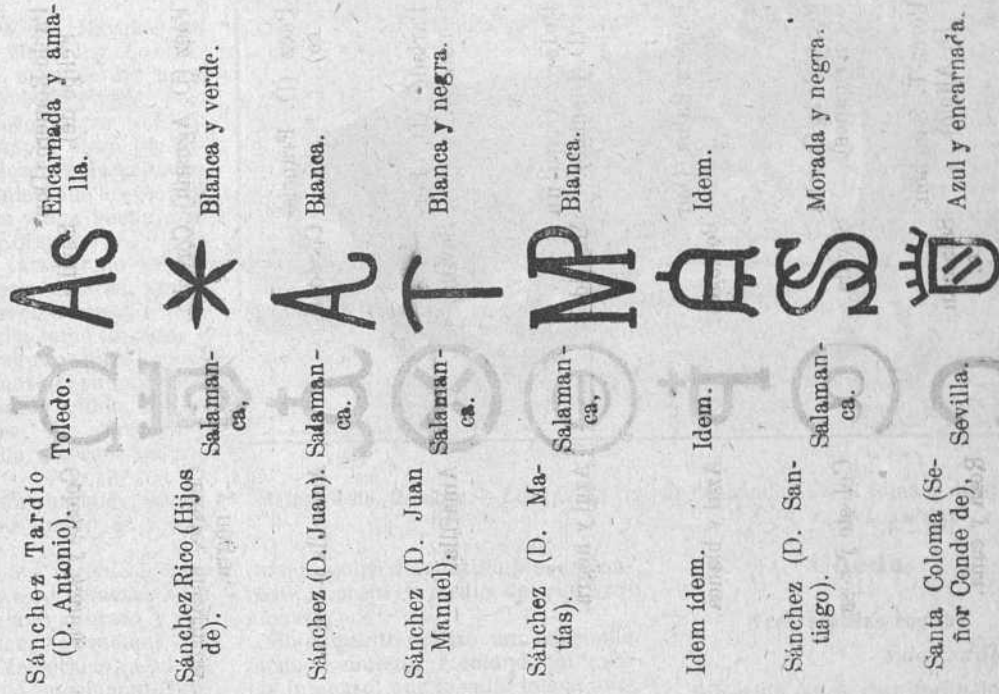 Sánchez Tardío
(D. Antonio).
Toledo.
AS
Encarnada y ama-
lla.
Sánchez Rico (Hijos
de).
Salaman-
ca,
Blanca y verde.
Sánchez (D. Juan).
Salaman-
ca.
Blanca.
Sánchez (D. Juan
Manuel).
Salaman-
ca.
T
Blanca y negra.
Sánchez (D. Ma-
tías).
Salaman-
ca,
MP
Blanca.
Idem ídem.
Idem.
A
Idem.
Sánchez (D. San-
tiago).
Salaman-
ca.
Morada y negra.
Santa Coloma (Se-
ñor Conde de).
Sevilla.
Azul y encarnada.